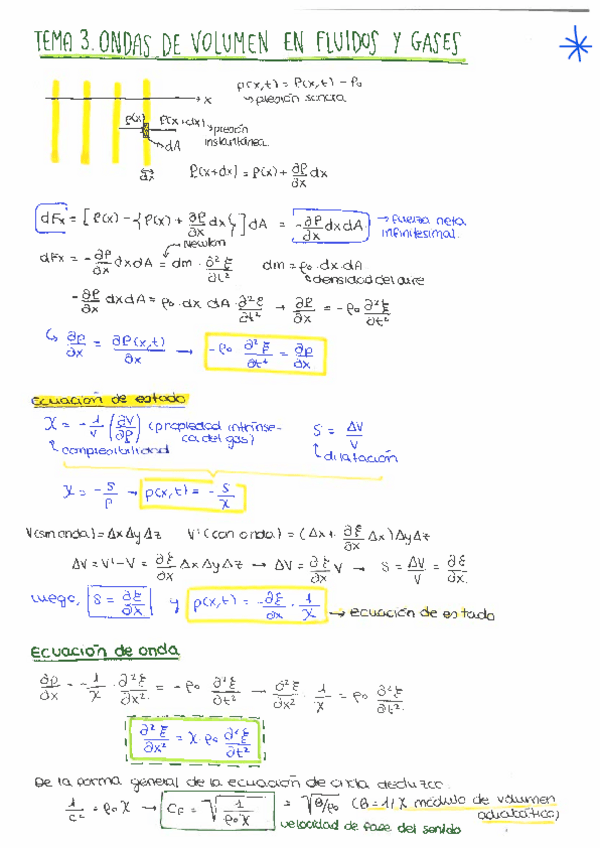 TEMA 3. ONDAS DE VOLUMEN EN FLUIDOS Y GASES
p(x,t) = P(x,t) - P₀
↳ presión sonora
x
P(x) P(x+dx) → presión instantánea
dA
dx
P(x+dx) = P(x) + ∂P/∂x dx
dFx = [P(x) - {P(x) + ∂P/∂x dx}] dA = -∂P/∂x dx dA → fuerza neta infinitesimal.
Newton
dFx = -∂P/∂x dx dA = dm · ∂²ξ/∂t² dm = ρ₀ · dx · dA
↳ densidad del aire
-∂P/∂x dx dA = ρ₀ · dx dA · ∂²ξ/∂t² → ∂P/∂x = -ρ₀ ∂²ξ/∂t²
↳ ∂p/∂x = ∂P(x,t)/∂x → -ρ₀ ∂²ξ/∂t² = ∂p/∂x
Ecuación de estado
χ = -1/V (∂V/∂P) (propiedad intrínseca del gas) S = ΔV/V
↳ compresibilidad ↳ dilatación
χ = -S/p → p(x,t) = -S/χ
V(sin onda) = ΔxΔyΔz V'(con onda) = (Δx + ∂ξ/∂x Δx)ΔyΔz
ΔV = V' - V = ∂ξ/∂x ΔxΔyΔz → ΔV = ∂ξ/∂x V → S = ΔV/V = ∂ξ/∂x.
Luego, S = ∂ξ/∂x y p(x,t) = -∂ξ/∂x · 1/χ → ecuación de estado
Ecuación de onda
∂p/∂x = -1/χ · ∂²ξ/∂x² = -ρ₀ ∂²ξ/∂t² → ∂²ξ/∂x² · 1/χ = ρ₀ ∂²ξ/∂t².
∂²ξ/∂x² = χ · ρ₀ ∂²ξ/∂t²
De la forma general de la ecuación de onda deduzco:
1/c² = ρ₀χ → CF = √(1/ρ₀χ) = √(B/ρ₀) (B = 1/χ módulo de volumen adiabático)
velocidad de fase del sonido